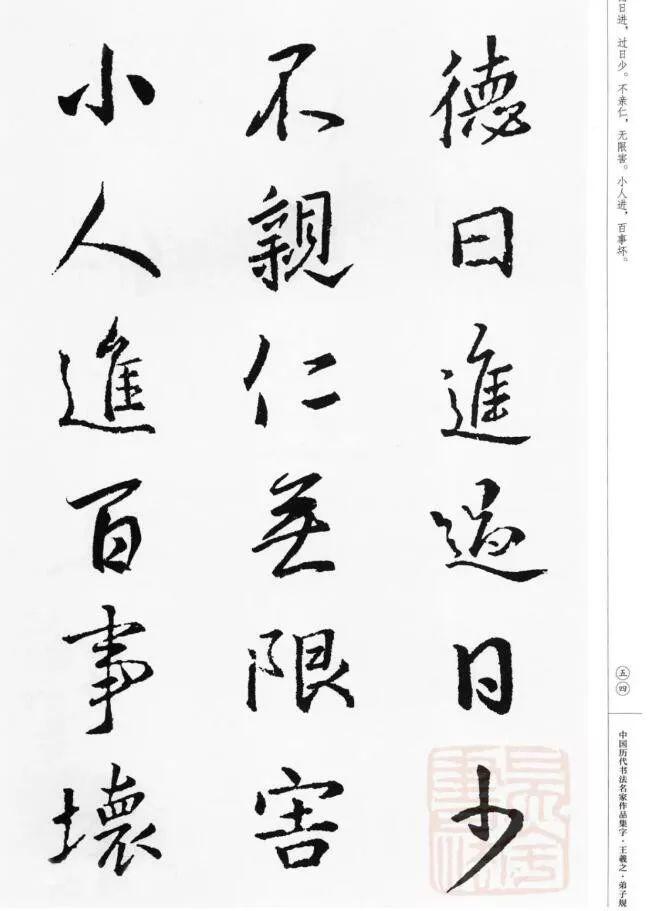 德日進過日少
不親仁無限害
小人進百事壞
日进，过日少。不亲仁，无限害。小人进，百事坏。
五四
中国历代书法名家作品集字·王羲之·弟子规